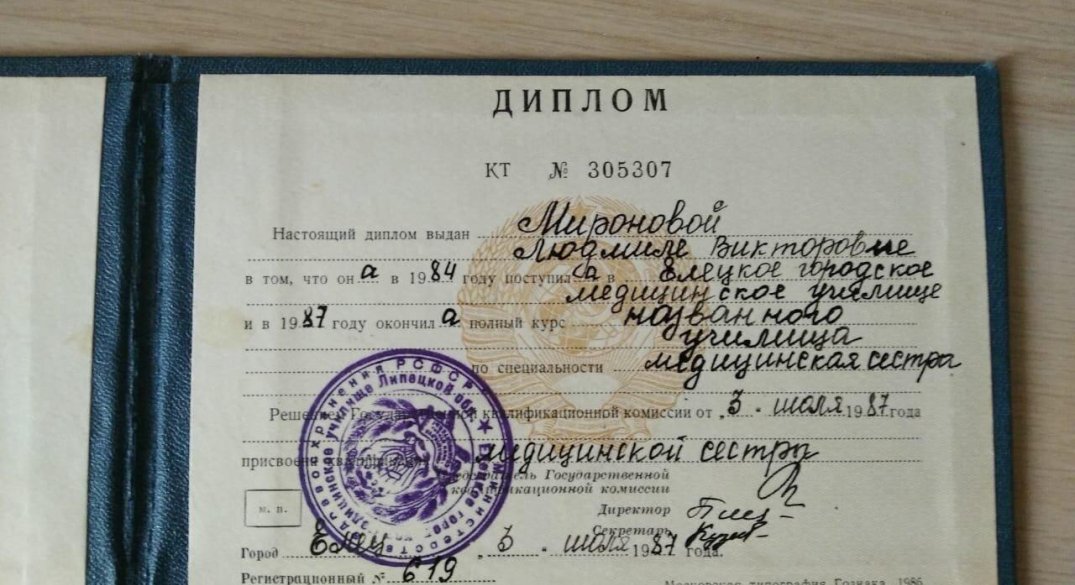 ДИПЛОМ
КТ № 305307
Настоящий диплом выдан Мироновой
Людмиле Викторовне
в том, что он а в 1984 году поступил са в Елецкое городское
медицинское училище
и в 1987 году окончил а полный курс названного
училища
по специальности медицинская сестра
Решением Государственной квалификационной комиссии от „3 • июля 1987 года
присвоена квалификация медицинской сестры
Председатель Государственной
квалификационной комиссии
Директор
Секретарь
м. п.
Город Елец „3 • июля 1987 года.
Регистрационный № 619
Московская типография Гознака. 1986
Министерство здравоохранения РСФСР
Елецкое медицинское училище Липецкой обл.